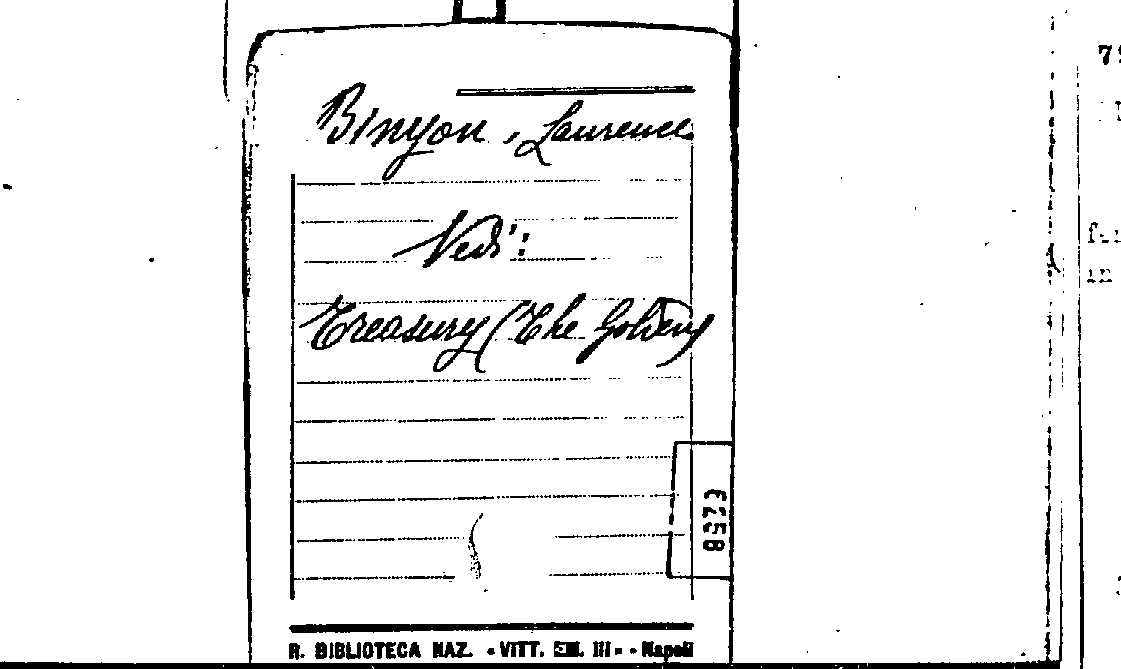 Binyon, Laurence
Vedi:
Treasury (The Golden)
R. BIBLIOTECA NAZ. - VITT. EM. III - - Napoli